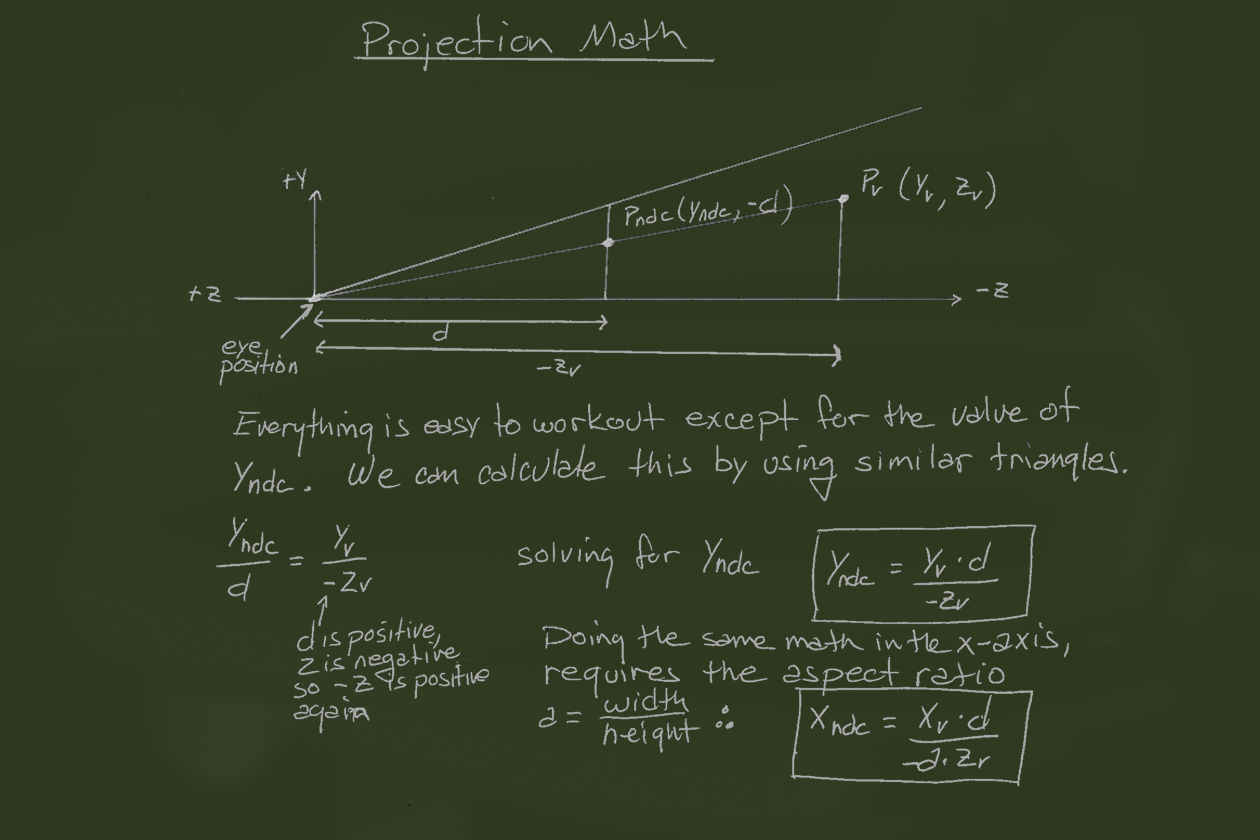 Projection Math
+Y
Pv (Yv, Zv)
Pndc (Yndc, -d)
+Z
-Z
d
eye
position
-Zv
Everything is easy to workout except for the value of
Yndc. We can calculate this by using similar triangles.
Yndc / d = Yv / -Zv
solving for Yndc
Yndc = Yv · d / -Zv
d is positive,
z is negative
so -z is positive
again
Doing the same math in the x-axis,
requires the aspect ratio
a = width / height ∴
Xndc = Xv · d / -a · Zv